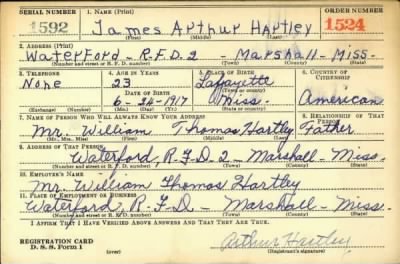 SERIAL NUMBER 1. NAME (Print) ORDER NUMBER
1592 James Arthur Hartley 1524
(First) (Middle) (Last)
2. ADDRESS (Print)
Waterford - R.F.D. 2 - Marshall - Miss.
(Number and street or R. F. D. number) (Town) (County) (State)
3. TELEPHONE 4. AGE IN YEARS 5. PLACE OF BIRTH 6. COUNTRY OF CITIZENSHIP
None 23 Lafayette
DATE OF BIRTH (Town or county)
6-24-1917 Miss. American
(Exchange) (Number) (Mo.) (Day) (Yr.) (State or country)
7. NAME OF PERSON WHO WILL ALWAYS KNOW YOUR ADDRESS 8. RELATIONSHIP OF THAT PERSON
Mr. William Thomas Hartley Father
(Mr., Mrs., Miss) (First) (Middle) (Last)
9. ADDRESS OF THAT PERSON
Waterford, R.F.D. 2 - Marshall - Miss.
(Number and street or R. F. D. number) (Town) (County) (State)
10. EMPLOYER'S NAME
Mr. William Thomas Hartley
11. PLACE OF EMPLOYMENT OR BUSINESS
Waterford, R.F.D - Marshall - Miss.
(Number and street or R. F. D. number) (Town) (County) (State)
I AFFIRM THAT I HAVE VERIFIED ABOVE ANSWERS AND THAT THEY ARE TRUE.
REGISTRATION CARD
D. S. S. Form 1 Arthur Hartley
(Registrant's signature)